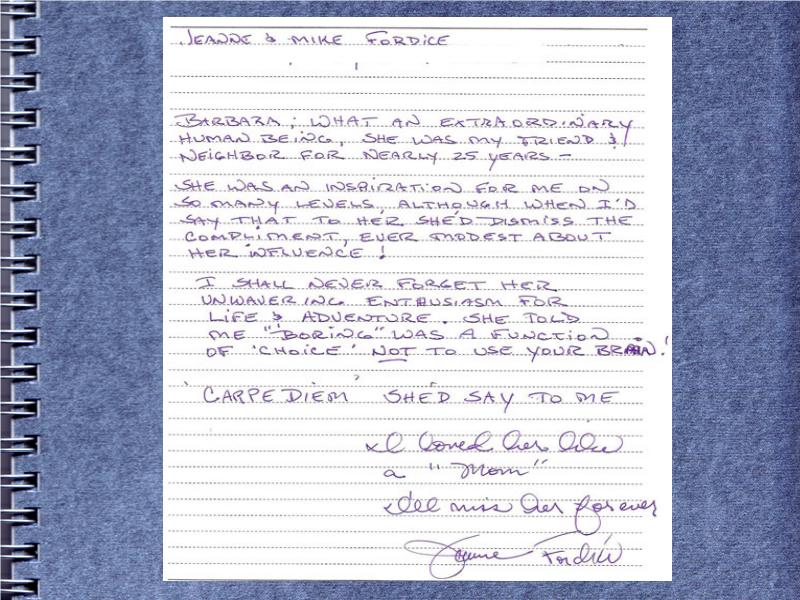 JEANNE & MIKE FORDICE
BARBARA; WHAT AN EXTRAORDINARY
HUMAN BEING, SHE WAS MY FRIEND &
NEIGHBOR FOR NEARLY 25 YEARS –
SHE WAS AN INSPIRATION FOR ME ON
SO MANY LEVELS, ALTHOUGH WHEN I'D
SAY THAT TO HER SHE'D DISMISS THE
COMPLIMENT, EVER MODEST ABOUT
HER INFLUENCE!
I SHALL NEVER FORGET HER
UNWAVERING ENTHUSIASM FOR
LIFE & ADVENTURE. SHE TOLD
ME "BORING" WAS A FUNCTION
OF 'CHOICE' NOT TO USE YOUR BRAIN!
'CARPE DIEM' SHE'D SAY TO ME
I loved her like
a "Mom"
I'll miss her forever
Jeanne Fordice